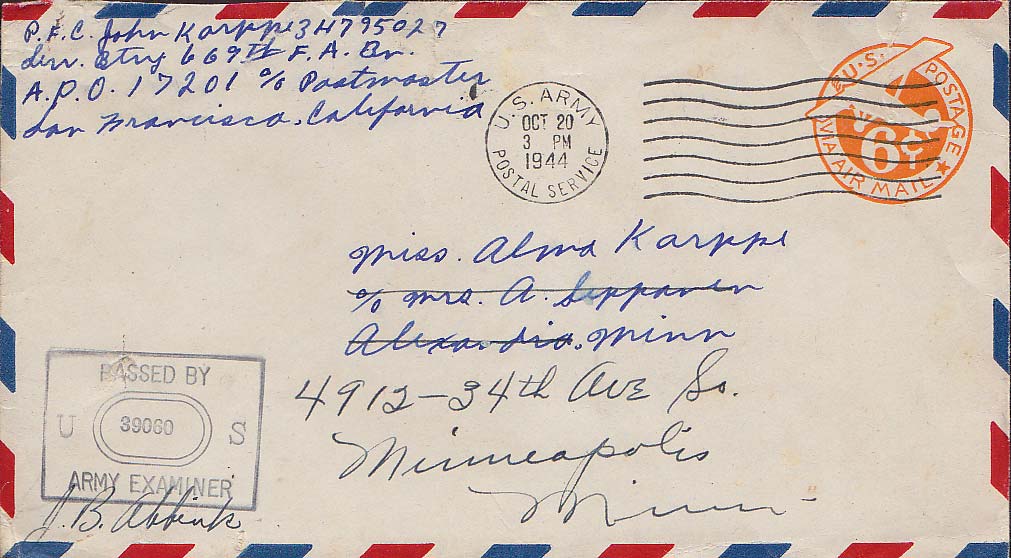 P.F.C. John Karppe 34795027
Serv. Btry 669th F.A. Bn.
A.P.O. 17201 c/o Postmaster
San Francisco, California
U.S. ARMY
OCT 20
3 PM
1944
POSTAL SERVICE
U.S. POSTAGE
6¢
VIA AIR MAIL
Miss. Alma Karppe
c/o Mrs. A. Seppanen
Alexandria, Minn
4912-34th Ave So.
Minneapolis
Minn
PASSED BY
U 39060 S
ARMY EXAMINER
J. B. Abbink